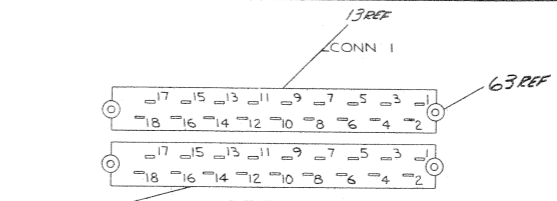 13 REF
CONN 1
63 REF
17 15 13 11 9 7 5 3 1
18 16 14 12 10 8 6 4 2
17 15 13 11 9 7 5 3 1
18 16 14 12 10 8 6 4 2